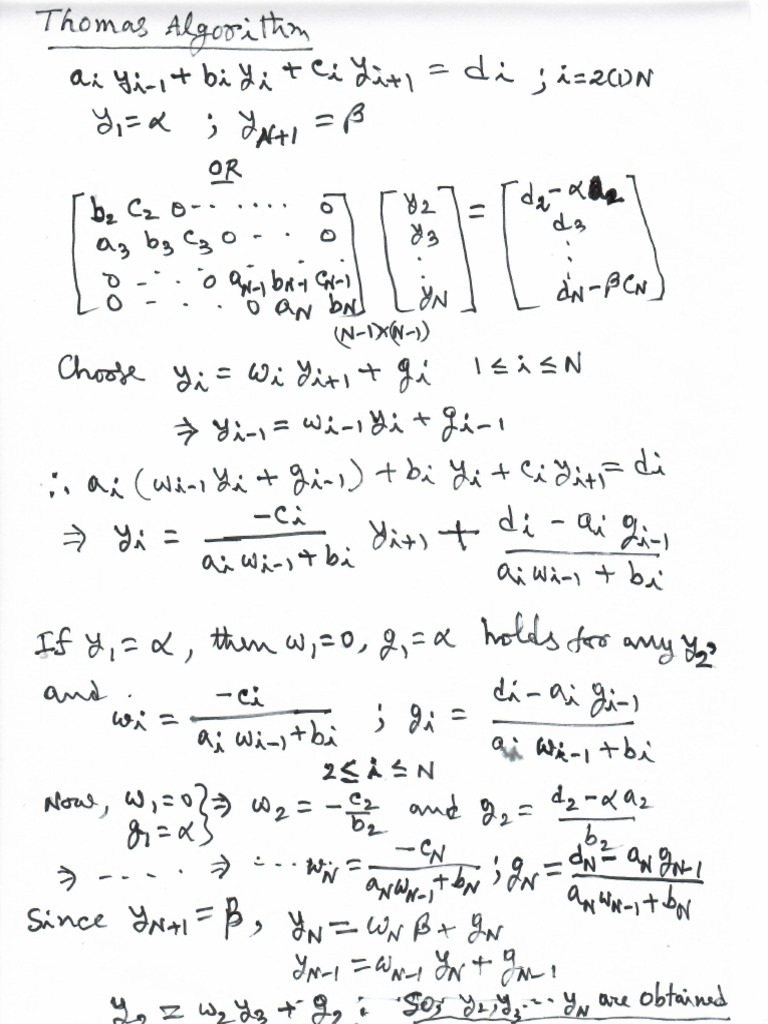 Thomas Algorithm
a_i y_{i-1} + b_i y_i + c_i y_{i+1} = d_i ; i=2(1)N
y_1 = α ; y_{N+1} = β
OR
[b_2 c_2 0 -- ···· 0] [y_2] = [d_2 - α a_2]
[a_3 b_3 c_3 0 - · · 0] [y_3] [d_3]
[0 - · · 0 a_{N-1} b_{N-1} c_{N-1}] [⋮] [⋮]
[0 - - · · 0 a_N b_N] [y_N] [d_N - β c_N]
(N-1)×(N-1)
Choose y_i = w_i y_{i+1} + g_i 1 ≤ i ≤ N
⇒ y_{i-1} = w_{i-1} y_i + g_{i-1}
∴ a_i (w_{i-1} y_i + g_{i-1}) + b_i y_i + c_i y_{i+1} = d_i
⇒ y_i = \frac{-c_i}{a_i w_{i-1} + b_i} y_{i+1} + \frac{d_i - a_i g_{i-1}}{a_i w_{i-1} + b_i}
If y_1 = α, then w_1 = 0, g_1 = α holds for any y_2,
and w_i = \frac{-c_i}{a_i w_{i-1} + b_i} ; g_i = \frac{d_i - a_i g_{i-1}}{a_i w_{i-1} + b_i}
2 ≤ i ≤ N
Now, w_1 = 0, g_1 = α} ⇒ w_2 = -\frac{c_2}{b_2} and g_2 = \frac{d_2 - α a_2}{b_2}
⇒ ---- ⇒ ··· w_N = \frac{-c_N}{a_N w_{N-1} + b_N} ; g_N = \frac{d_N - a_N g_{N-1}}{a_N w_{N-1} + b_N}
Since y_{N+1} = β, y_N = w_N β + g_N
y_{N-1} = w_{N-1} y_N + g_{N-1}
y_2 = w_2 y_3 + g_2 . So, y_2, y_3 ··· y_N are obtained